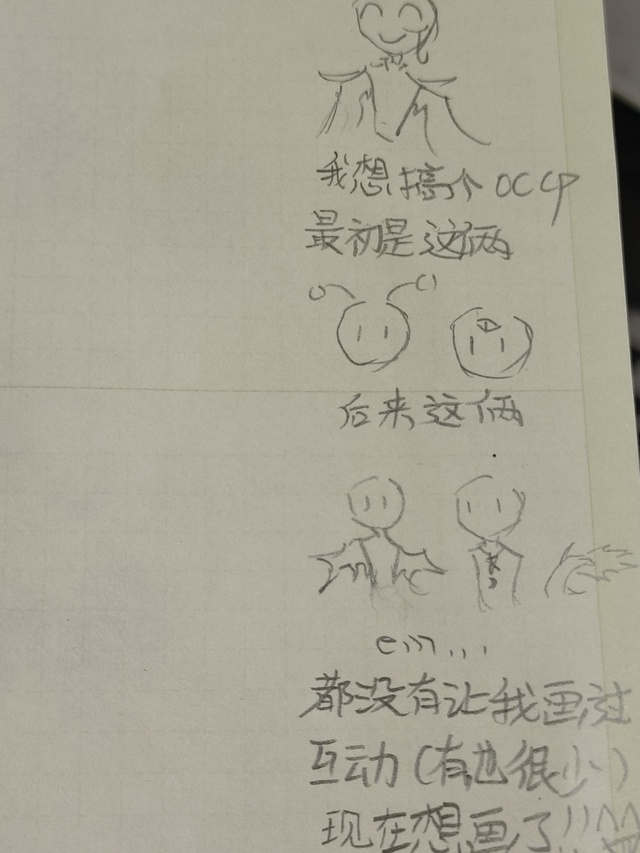 我想搞个OCCP
最初是这俩
后来这俩
em...
都没有让我画过
互动(有也很少)
现在想画了!!